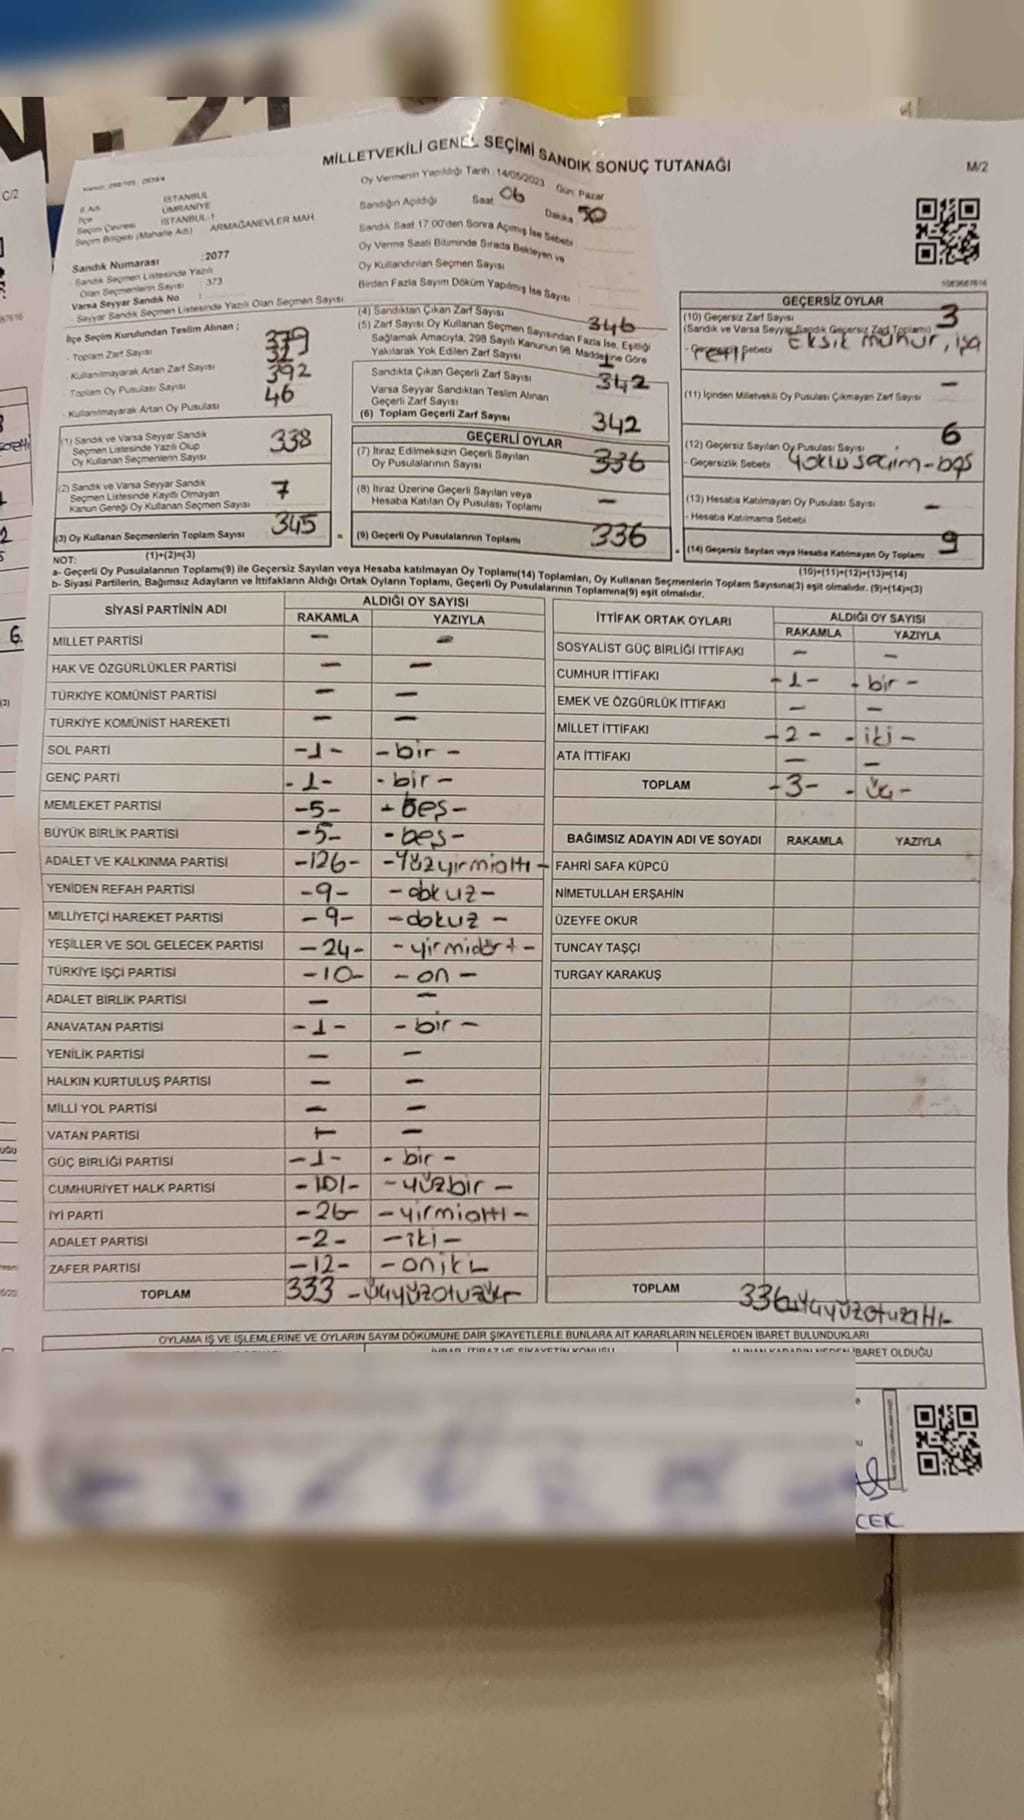 N . 21
C/2
MİLLETVEKİLİ GENEL SEÇİMİ SANDIK SONUÇ TUTANAĞI
M/2
İl Adı İSTANBUL
İlçe ÜMRANİYE
Seçim Çevresi İSTANBUL-1
Seçim Bölgesi (Mahalle Adı) ARMAĞANEVLER MAH
Sandık Numarası : 2077
Sandık Seçmen Listesinde Yazılı
Olan Seçmenlerin Sayısı 373
Varsa Seyyar Sandık No :
Seyyar Sandık Seçmen Listesinde Yazılı Olan Seçmen Sayısı
Oy Vermenin Yapıldığı Tarih : 14/05/2023 Gün: Pazar
Sandığın Açıldığı Saat 06 Dakika 50
Sandık Saat 17:00'den Sonra Açılmış İse Sebebi
Oy Verme Saati Bitiminde Sırada Bekleyen ve
Oy Kullandırılan Seçmen Sayısı
Birden Fazla Sayım Döküm Yapılmış İse Sayısı
İlçe Seçim Kurulundan Teslim Alınan ;
- Toplam Zarf Sayısı 379
- Kullanılmayarak Artan Zarf Sayısı
- Toplam Oy Pusulası Sayısı 392
- Kullanılmayarak Artan Oy Pusulası 46
(1) Sandık ve Varsa Seyyar Sandık
Seçmen Listesinde Yazılı Olup
Oy Kullanan Seçmenlerin Sayısı 338
(2) Sandık ve Varsa Seyyar Sandık
Seçmen Listesinde Kayıtlı Olmayan
Kanun Gereği Oy Kullanan Seçmen Sayısı 7
(3) Oy Kullanan Seçmenlerin Toplam Sayısı 345
(1)+(2)=(3)
(4) Sandıktan Çıkan Zarf Sayısı 346
(5) Zarf Sayısı Oy Kullanan Seçmen Sayısından Fazla İse, Eşitliği
Sağlamak Amacıyla, 298 Sayılı Kanunun 98. Maddesine Göre
Yakılarak Yok Edilen Zarf Sayısı 1
Sandıkta Çıkan Geçerli Zarf Sayısı 342
Varsa Seyyar Sandıktan Teslim Alınan
Geçerli Zarf Sayısı
(6) Toplam Geçerli Zarf Sayısı 342
GEÇERLİ OYLAR
(7) İtiraz Edilmeksizin Geçerli Sayılan
Oy Pusulalarının Sayısı 336
(8) İtiraz Üzerine Geçerli Sayılan veya
Hesaba Katılan Oy Pusulası Toplamı -
= (9) Geçerli Oy Pusulalarının Toplamı 336
GEÇERSİZ OYLAR
(10) Geçersiz Zarf Sayısı 3
(Sandık ve Varsa Seyyar Sandık Geçersiz Zarf Toplamı)
- Geçersizlik Sebebi Eksik mühür, işa
retli
(11) İçinden Milletvekili Oy Pusulası Çıkmayan Zarf Sayısı -
(12) Geçersiz Sayılan Oy Pusulası Sayısı 6
- Geçersizlik Sebebi
(13) Hesaba Katılmayan Oy Pusulası Sayısı -
- Hesaba Katılmama Sebebi
+ (14) Geçersiz Sayılan veya Hesaba Katılmayan Oy Toplamı 9
(10)+(11)+(12)+(13)=(14)
NOT:
a- Geçerli Oy Pusulalarının Toplamı(9) ile Geçersiz Sayılan veya Hesaba katılmayan Oy Toplamı(14) Toplamları, Oy Kullanan Seçmenlerin Toplam Sayısına(3) eşit olmalıdır. (9)+(14)=(3)
b- Siyasi Partilerin, Bağımsız Adayların ve İttifakların Aldığı Ortak Oyların Toplamı, Geçerli Oy Pusulalarının Toplamına(9) eşit olmalıdır.
SİYASİ PARTİNİN ADI
ALDIĞI OY SAYISI
RAKAMLA YAZIYLA
MİLLET PARTİSİ - -
HAK VE ÖZGÜRLÜKLER PARTİSİ - -
TÜRKİYE KOMÜNİST PARTİSİ - -
TÜRKİYE KOMÜNİST HAREKETİ - -
SOL PARTİ -1- -bir-
GENÇ PARTİ -1- -bir-
MEMLEKET PARTİSİ -5- -beş-
BÜYÜK BİRLİK PARTİSİ -5- -beş-
ADALET VE KALKINMA PARTİSİ -126- -yüzyirmialtı-
YENİDEN REFAH PARTİSİ -9- -dokuz-
MİLLİYETÇİ HAREKET PARTİSİ -9- -dokuz-
YEŞİLLER VE SOL GELECEK PARTİSİ -24- -yirmidört-
TÜRKİYE İŞÇİ PARTİSİ -10- -on-
ADALET BİRLİK PARTİSİ - -
ANAVATAN PARTİSİ -1- -bir-
YENİLİK PARTİSİ - -
HALKIN KURTULUŞ PARTİSİ - -
MİLLİ YOL PARTİSİ - -
VATAN PARTİSİ - -
GÜÇ BİRLİĞİ PARTİSİ -1- -bir-
CUMHURİYET HALK PARTİSİ -101- -yüzbir-
İYİ PARTİ -26- -yirmialtı-
ADALET PARTİSİ -2- -iki-
ZAFER PARTİSİ -12- -oniki
TOPLAM 333 -üçyüzotuzüç-
İTTİFAK ORTAK OYLARI
ALDIĞI OY SAYISI
RAKAMLA YAZIYLA
SOSYALİST GÜÇ BİRLİĞİ İTTİFAKI - -
CUMHUR İTTİFAKI -1- -bir-
EMEK VE ÖZGÜRLÜK İTTİFAKI - -
MİLLET İTTİFAKI -2- -iki-
ATA İTTİFAKI - -
TOPLAM -3- -üç-
BAĞIMSIZ ADAYIN ADI VE SOYADI RAKAMLA YAZIYLA
FAHRİ SAFA KÜPCÜ
NİMETULLAH ERŞAHİN
ÜZEYFE OKUR
TUNCAY TAŞÇI
TURGAY KARAKUŞ
TOPLAM 336 üçyüzotuzaltı-
OYLAMA İŞ VE İŞLEMLERİNE VE OYLARIN SAYIM DÖKÜMÜNE DAİR ŞİKAYETLERLE BUNLARA AİT KARARLARIN NELERDEN İBARET BULUNDUKLARI
İHBAR, İTİRAZ VE ŞİKAYETİN KONUSU
ALINAN KARARIN NEDEN İBARET OLDUĞU
CEK